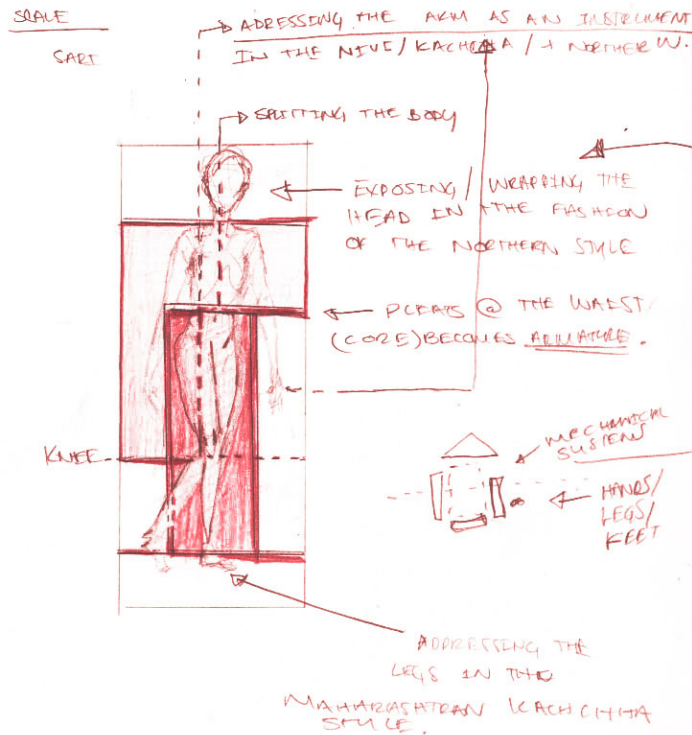 SCALE
SARI
ADRESSING THE ARM AS AN INSTRUMENT
IN THE NIVI/KACHCHHA/+ NORTHER W.
SPLITTING THE BODY
EXPOSING/WRAPPING THE
HEAD IN THE FASHION
OF THE NORTHERN STYLE
PLEATS @ THE WAIST
(CORE) BECOMES ARMATURE.
KNEE
MECHANICAL
SYSTEM
HANDS/
LEGS/
FEET
ADDRESSING THE
LEGS IN THE
MAHARASHTRAN KACHCHHA
STYLE.